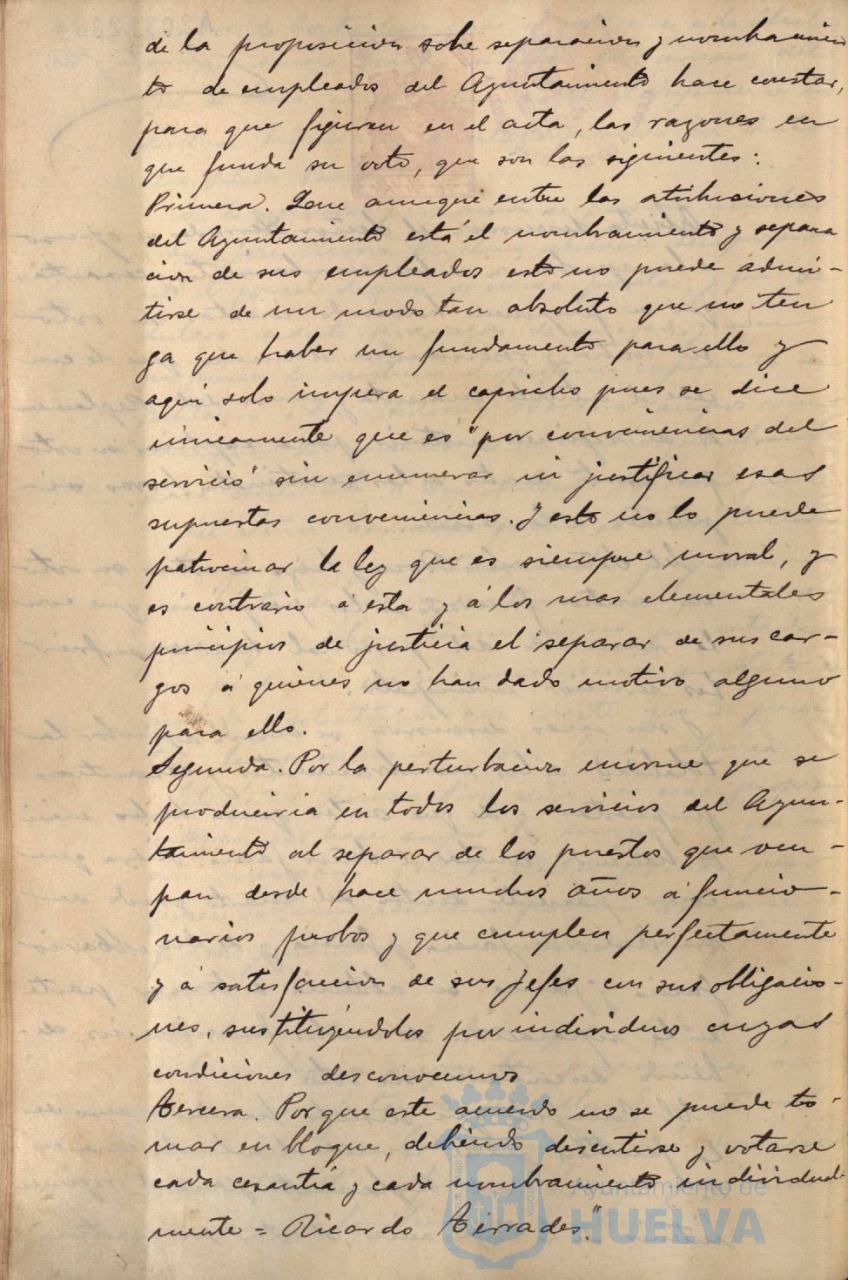 de la proposicion sobre separacion y nombramien
to de empleados del Ayuntamiento hace constar,
para que figuren en el acta, las razones en
que funda su voto, que son las siguientes:
Primera. Que aunque entre las atribuciones
del Ayuntamiento está el nombramiento y separa
cion de sus empleados esto no puede admi-
tirse de un modo tan absoluto que no ten
ga que haber un fundamento para ello y
aquí solo impera el capricho pues se dice
unicamente que es "por conveniencias del
servicio" sin enumerar ni justificar esas
supuestas conveniencias. Y esto no lo puede
patrocinar la ley que es siempre moral, y
es contrario á esta y á los mas elementales
principios de justicia el separar de sus car-
gos á quienes no han dado motivo alguno
para ello.
Segunda. Por la perturbacion enorme que se
produciria en todos los servicios del Ayun-
tamiento al separar de los puestos que ocu-
pan desde hace muchos años á funcio-
narios probos y que cumplen perfectamente
y á satisfaccion de sus jefes con sus obligacio-
nes, sustituyéndolos por individuos cuyas
condiciones desconocemos
Tercera. Porque este acuerdo no se puede to-
mar en bloque, debiendo discutirse y votarse
cada cesantía y cada nombramiento individual-
mente = Ricardo Terrades."
Ayuntamiento de
HUELVA